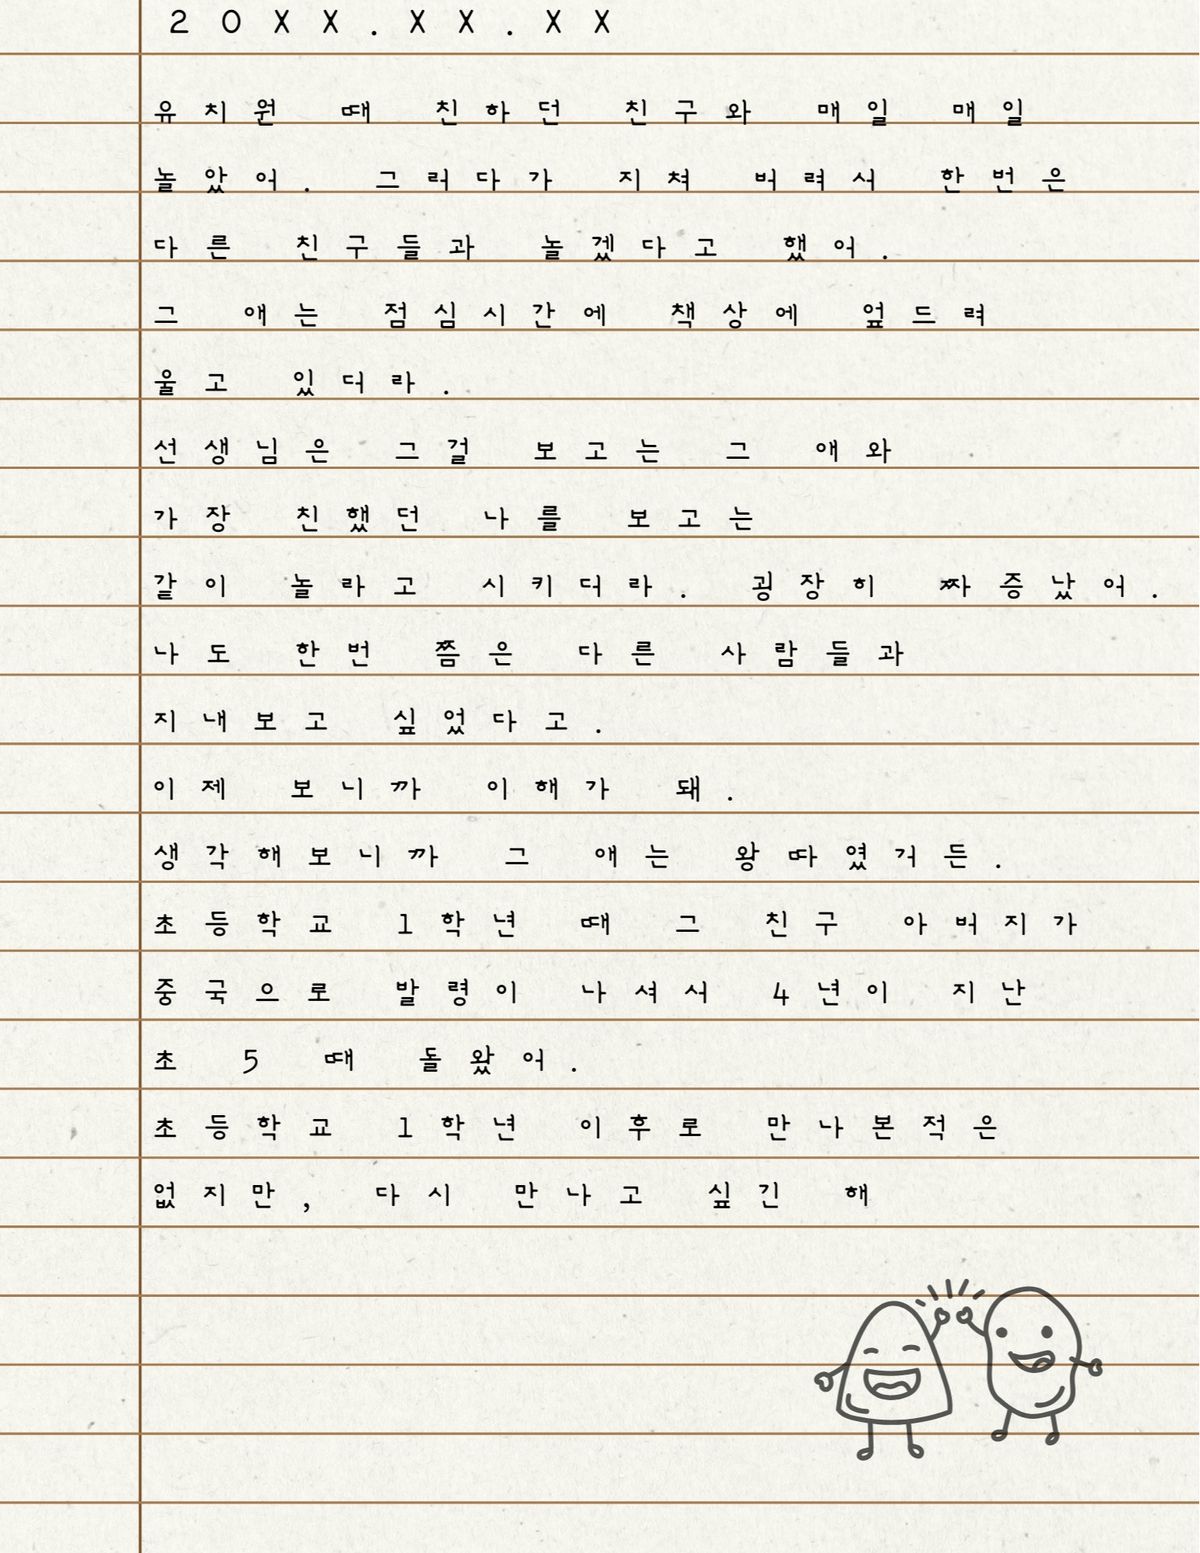 20XX.XX.XX
유치원 때 친하던 친구와 매일 매일
놀았어. 그러다가 지쳐 버려서 한번은
다른 친구들과 놀겠다고 했어.
그 애는 점심시간에 책상에 엎드려
울고 있더라.
선생님은 그걸 보고는 그 애와
가장 친했던 나를 보고는
같이 놀라고 시키더라. 굉장히 짜증났어.
나도 한번 쯤은 다른 사람들과
지내보고 싶었다고.
이제 보니까 이해가 돼.
생각해보니까 그 애는 왕따였거든.
초등학교 1학년 때 그 친구 아버지가
중국으로 발령이 나셔서 4년이 지난
초 5 때 돌왔어.
초등학교 1학년 이후로 만나본적은
없지만, 다시 만나고 싶긴 해